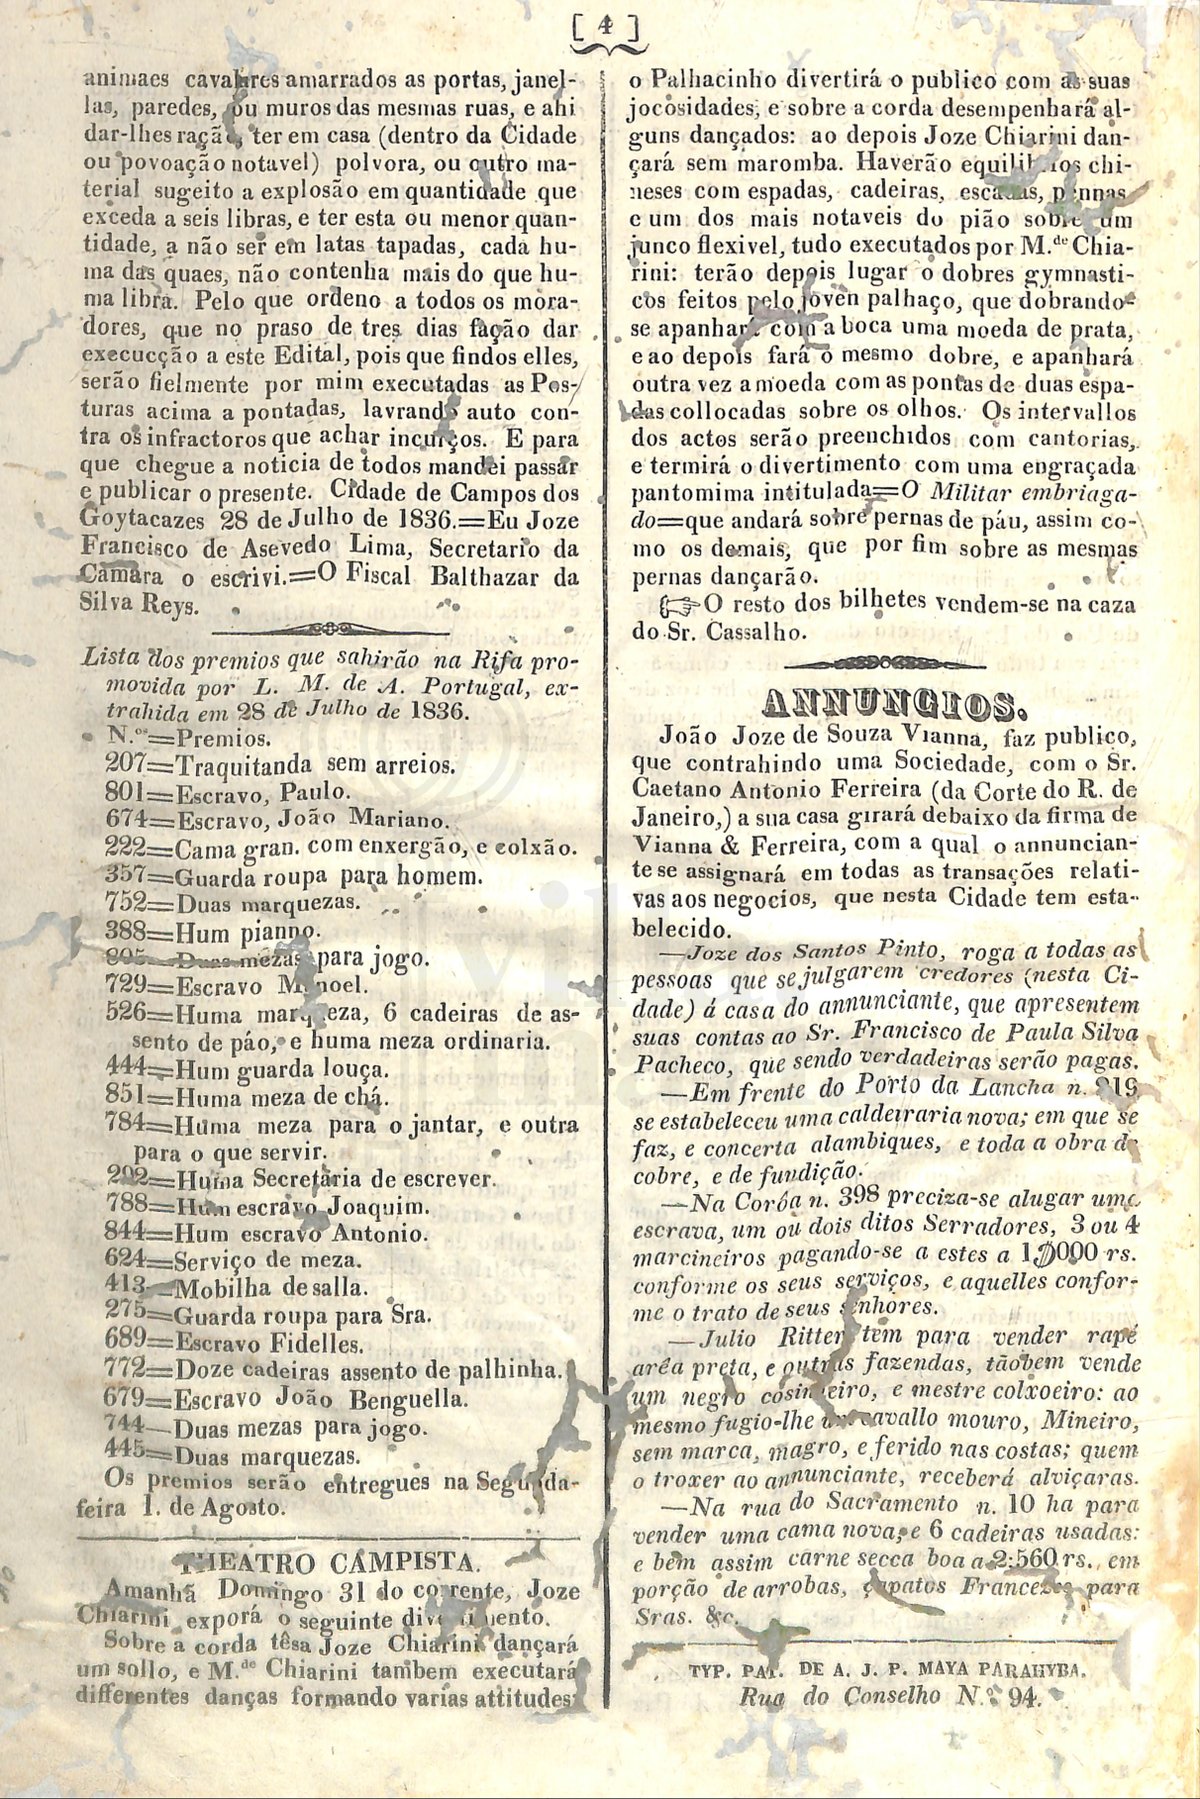 [ 4 ]
animaes cavalares amarrados as portas, janel-
las, paredes, ou muros das mesmas ruas, e ahi
dar-lhes ração, ter em casa (dentro da Cidade
ou povoação notavel) polvora, ou outro ma-
terial sugeito a explosão em quantidade que
exceda a seis libras, e ter esta ou menor quan-
tidade, a não ser em latas tapadas, cada hu-
ma das quaes, não contenha mais do que hu-
ma libra. Pelo que ordeno a todos os mora-
dores, que no praso de tres dias fação dar
execucção a este Edital, pois que findos elles,
serão fielmente por mim executadas as Pos-
turas acima a pontadas, lavrando auto con-
tra os infractoros que achar incurços. E para
que chegue a noticia de todos mandei passar
e publicar o presente. Cidade de Campos dos
Goytacazes 28 de Julho de 1836.=Eu Joze
Francisco de Asevedo Lima, Secretario da
Camara o escrivi.=O Fiscal Balthazar da
Silva Reys.
Lista dos premios que sahirão na Rifa pro-
movida por L. M. de A. Portugal, ex-
trahida em 28 de Julho de 1836.
N.os=Premios.
207=Traquitanda sem arreios.
801=Escravo, Paulo.
674=Escravo, João Mariano.
222=Cama gran. com enxergão, e colxão.
357=Guarda roupa para homem.
752=Duas marquezas.
388=Hum pianno.
805=Duas mezas para jogo.
729=Escravo Manoel.
526=Huma marqueza, 6 cadeiras de as-
sento de páo, e huma meza ordinaria.
444=Hum guarda louça.
851=Huma meza de chá.
784=Huma meza para o jantar, e outra
para o que servir.
292=Huma Secretaria de escrever.
788=Hum escravo Joaquim.
844=Hum escravo Antonio.
624=Serviço de meza.
413=Mobilha de salla.
275=Guarda roupa para Sra.
689=Escravo Fidelles.
772=Doze cadeiras assento de palhinha.
679=Escravo João Benguella.
744—Duas mezas para jogo.
445=Duas marquezas.
Os premios serão entregues na Segunda-
feira 1. de Agosto.
THEATRO CAMPISTA.
Amanhã Domingo 31 do corrente, Joze
Chiarini exporá o seguinte divertimento.
Sobre a corda têsa Joze Chiarini dançará
um sollo, e M.de Chiarini tambem executará
differentes danças formando varias attitudes:
o Palhacinho divertirá o publico com as suas
jocosidades, e sobre a corda desempenhará al-
guns dançados: ao depois Joze Chiarini dan-
çará sem maromba. Haverão equilibrios chi-
neses com espadas, cadeiras, escadas, pennas
e um dos mais notaveis do pião sobre um
junco flexivel, tudo executados por M.de Chia-
rini: terão depois lugar o dobres gymnasti-
cos feitos pelo joven palhaço, que dobrando-
se apanhará com a boca uma moeda de prata,
e ao depois fará o mesmo dobre, e apanhará
outra vez a moeda com as pontas de duas espa-
das collocadas sobre os olhos. Os intervallos
dos actos serão preenchidos com cantorias,
e termirá o divertimento com uma engraçada
pantomima intitulada=O Militar embriaga-
do=que andará sobre pernas de páu, assim co-
mo os demais, que por fim sobre as mesmas
pernas dançarão.
☞O resto dos bilhetes vendem-se na caza
do Sr. Cassalho.
ANNUNCIOS.
João Joze de Souza Vianna, faz publico,
que contrahindo uma Sociedade, com o Sr.
Caetano Antonio Ferreira (da Corte do R. de
Janeiro,) a sua casa girará debaixo da firma de
Vianna & Ferreira, com a qual o annuncian-
te se assignará em todas as transações relati-
vas aos negocios, que nesta Cidade tem esta-
belecido.
—Joze dos Santos Pinto, roga a todas as
pessoas que se julgarem credores (nesta Ci-
dade) á casa do annunciante, que apresentem
suas contas ao Sr. Francisco de Paula Silva
Pacheco, que sendo verdadeiras serão pagas.
—Em frente do Porto da Lancha n. 219
se estabeleceu uma caldeiraria nova; em que se
faz, e concerta alambiques, e toda a obra de
cobre, e de fundição.
—Na Corôa n. 398 preciza-se alugar uma
escrava, um ou dois ditos Serradores, 3 ou 4
marcineiros pagando-se a estes a 1$000 rs.
conforme os seus serviços, e aquelles confor-
me o trato de seus senhores.
—Julio Ritter tem para vender rapé
arêa preta, e outras fazendas, tãobem vende
um negro cosinheiro, e mestre colxoeiro: ao
mesmo fugio-lhe um cavallo mouro, Mineiro,
sem marca, magro, e ferido nas costas; quem
o troxer ao annunciante, receberá alviçaras.
—Na rua do Sacramento n. 10 ha para
vender uma cama nova, e 6 cadeiras usadas:
e bem assim carne secca boa a 2:560 rs. em
porção de arrobas, çapatos Francezes para
Sras. &c.
TYP. PAT. DE A. J. P. MAYA PARAHYBA.
Rua do Conselho N.o 94.